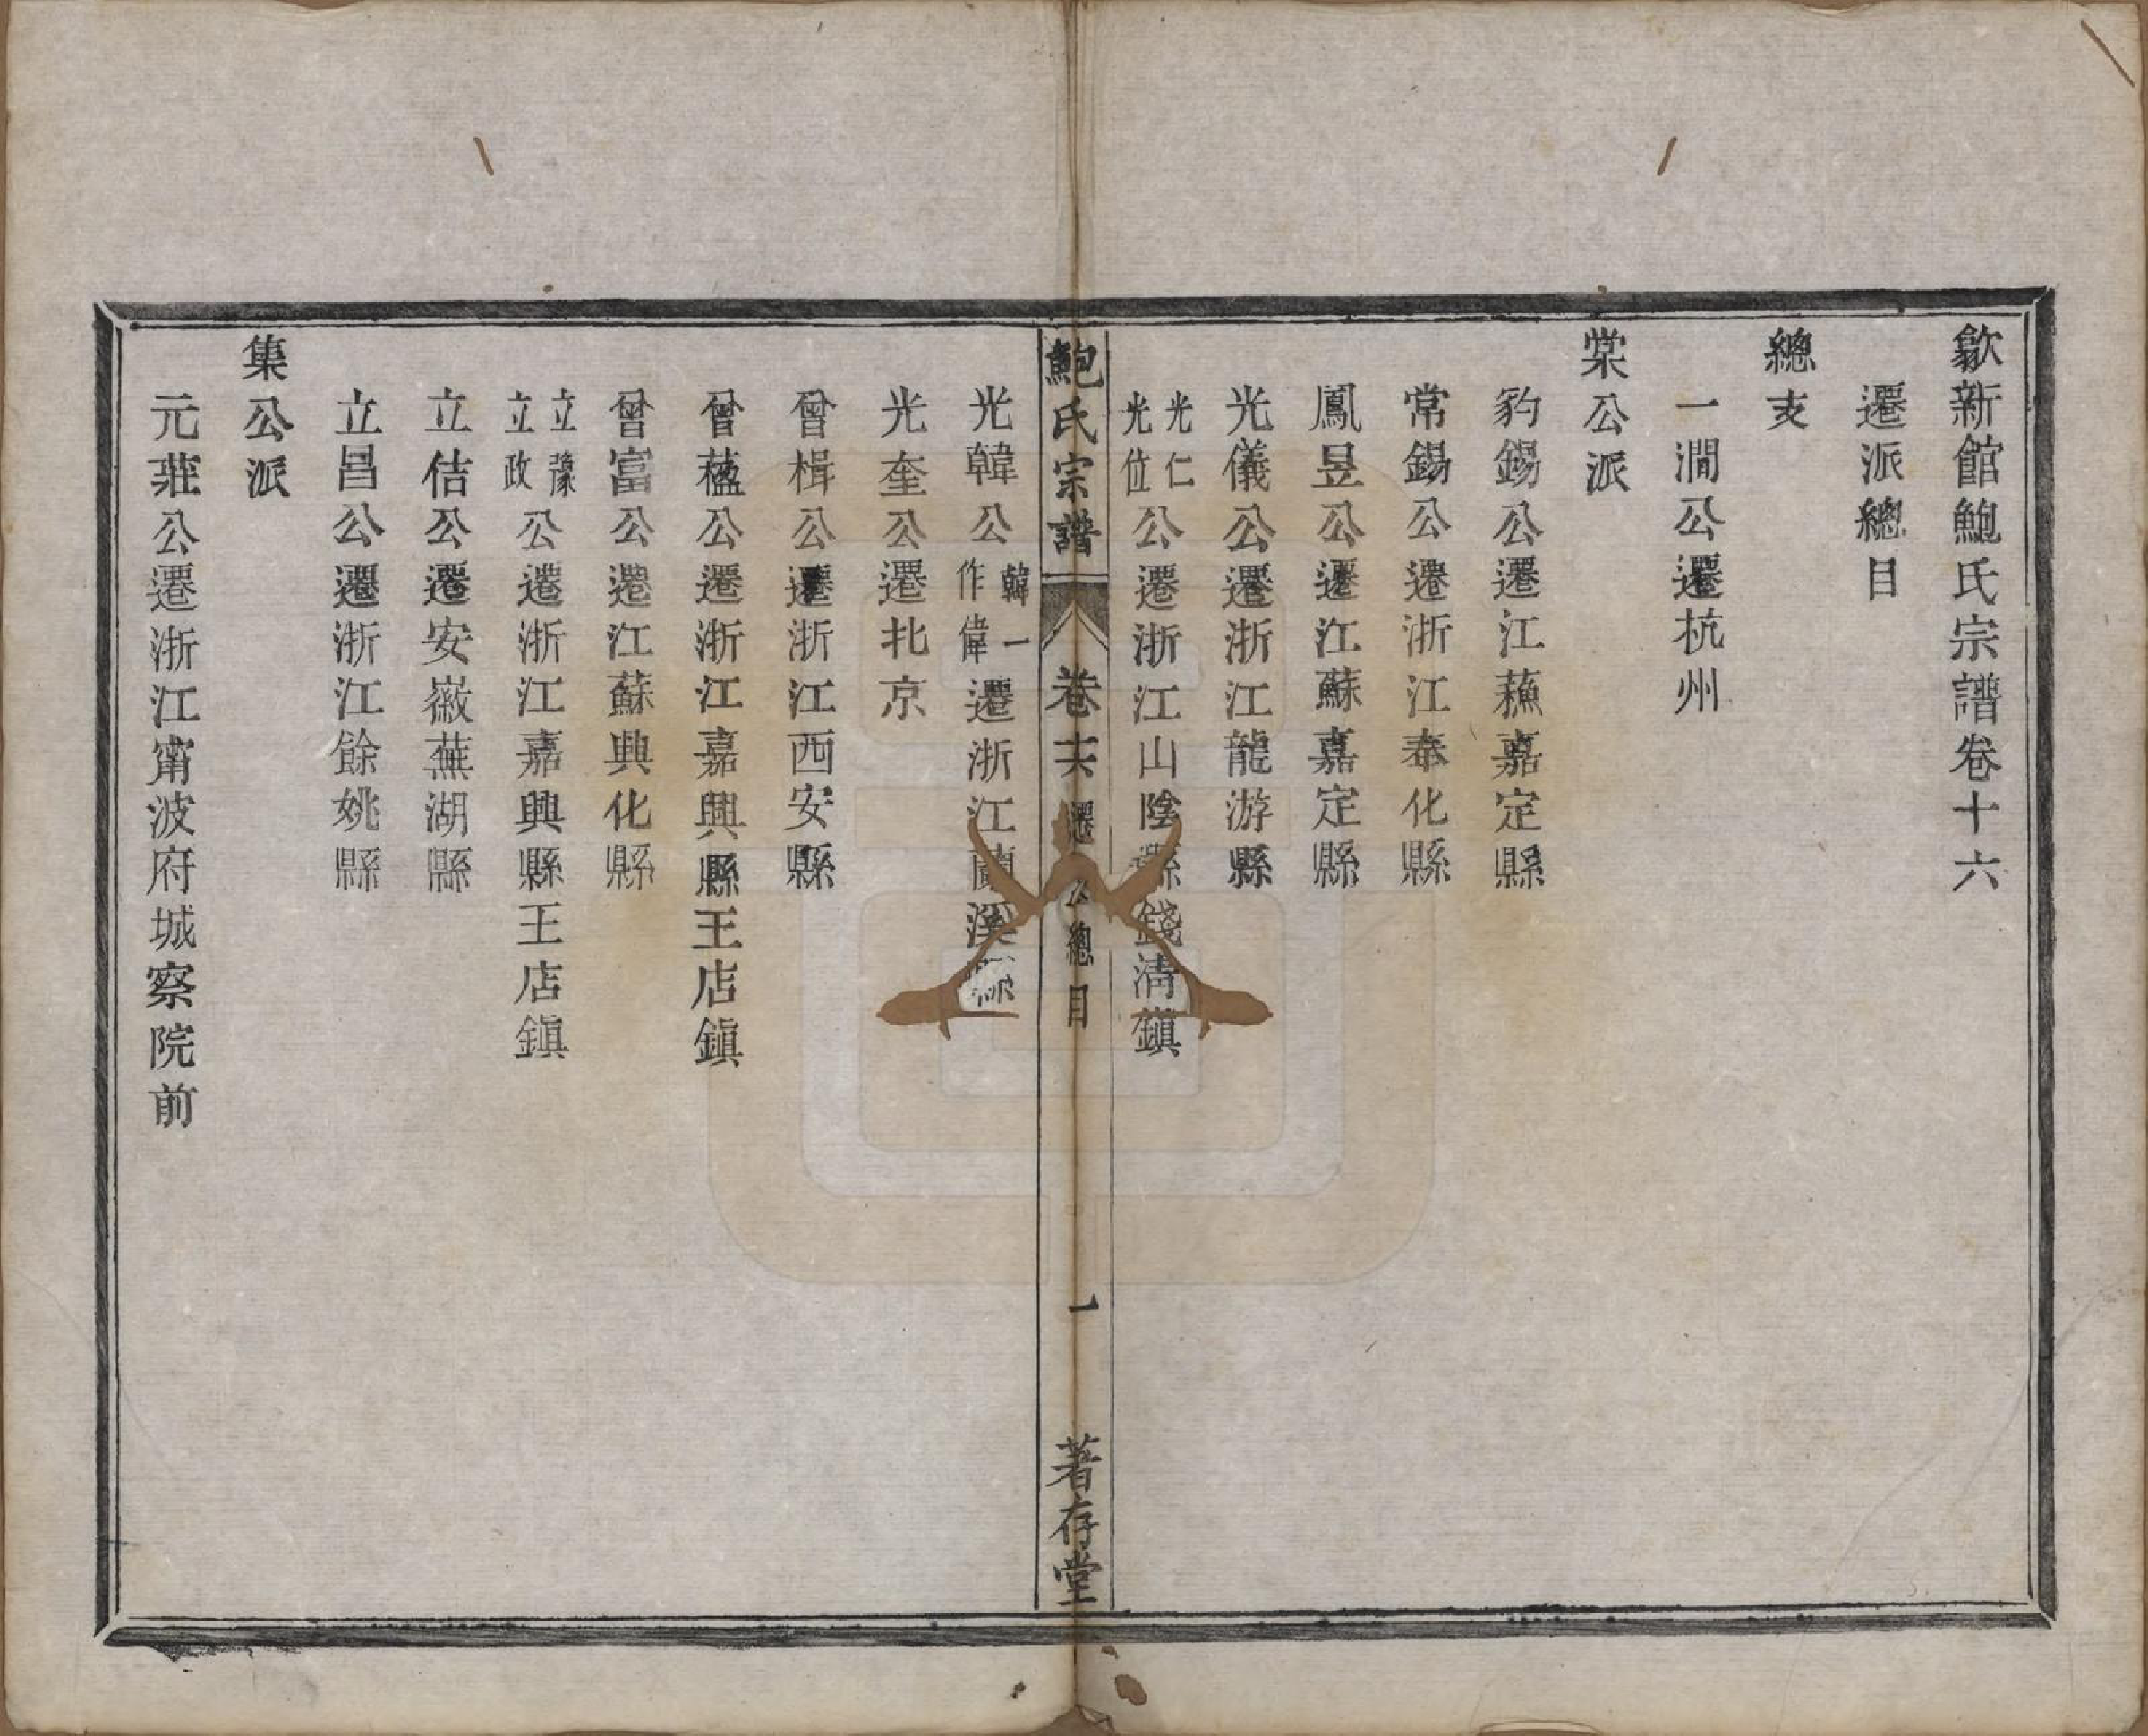 歙新館鮑氏宗譜卷十六
遷派總目
總支
一澗公遷杭州
棠公派
豹錫公遷江蘇嘉定縣
常錫公遷浙江奉化縣
鳳昱公遷江蘇嘉定縣
光儀公遷浙江龍游縣
光仁
光位
公遷浙江山陰縣錢清鎮
鮑氏宗譜
卷十六
遷
總目
一
著存堂
光韓公
韓一
作偉
遷浙江蘭溪縣
光奎公遷北京
曾楫公遷浙江西安縣
曾蘊公遷浙江嘉興縣王店鎮
曾富公遷江蘇興化縣
立豫
立政
公遷浙江嘉興縣王店鎮
立佶公遷安徽蕪湖縣
立昌公遷浙江餘姚縣
集公派
元莊公遷浙江甯波府城察院前